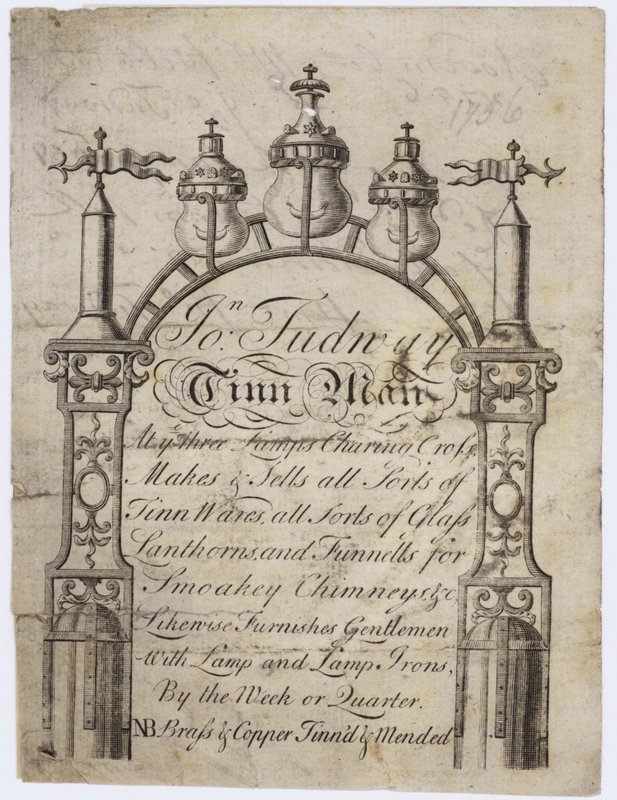 Jo:n Tudway
Tinn Man
At ye three Lamps Charing Cross,
Makes & Sells all Sorts of
Tinn Wares, all Sorts of Glass
Lanthorns, and Funnells for
Smoakey Chimneys, &c
Likewise Furnishes Gentlemen
With Lamp and Lamp Irons,
By the Week or Quarter.
NB Brass & Copper Tinn'd & Mended